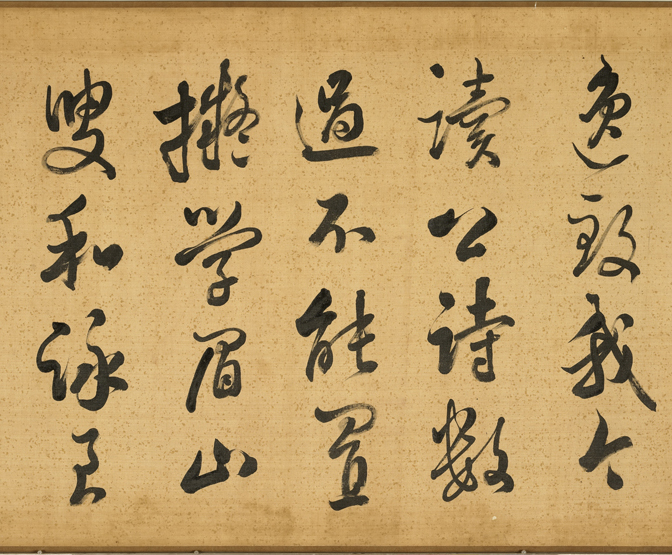 逸致我今
讀公詩數
過不能置
擬學眉山
叟和詠良